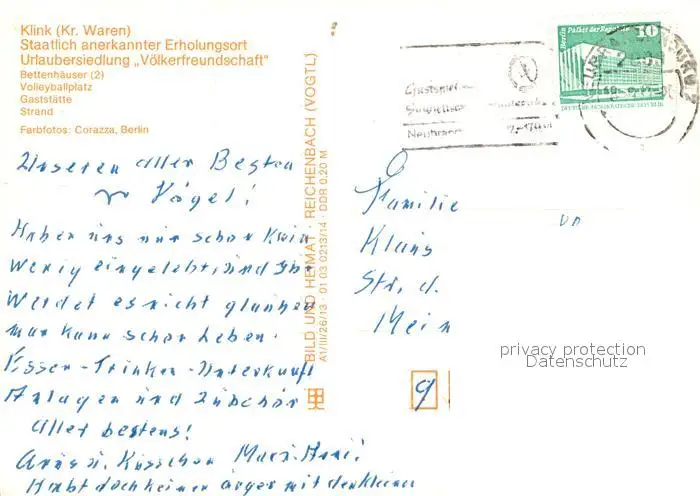 Klink (Kr. Waren)
Staatlich anerkannter Erholungsort
Urlaubersiedlung „Völkerfreundschaft"
Bettenhäuser (2)
Volleyballplatz
Gaststätte
Strand
Farbfotos: Corazza, Berlin
Unseren aller Besten
Vögel!
Haben uns nur schon klein
wenig eingelebt, und Ihr
werdet es nicht glauben
man kann schon leben.
Essen - Trinken - Unterkunft
Anlagen und Zubehör
alles bestens!
Gruss u. Küsschen
Habt doch keinen ärger mit den kleinen
BILD UND HEIMAT REICHENBACH (VOGTL)
A1/III/26/13 01 03 0213/14 DDR 0,20 M
Berlin Palast der Republik
10
Familie
Klaus
Str. d.
Mein
9
privacy protection
Datenschutz